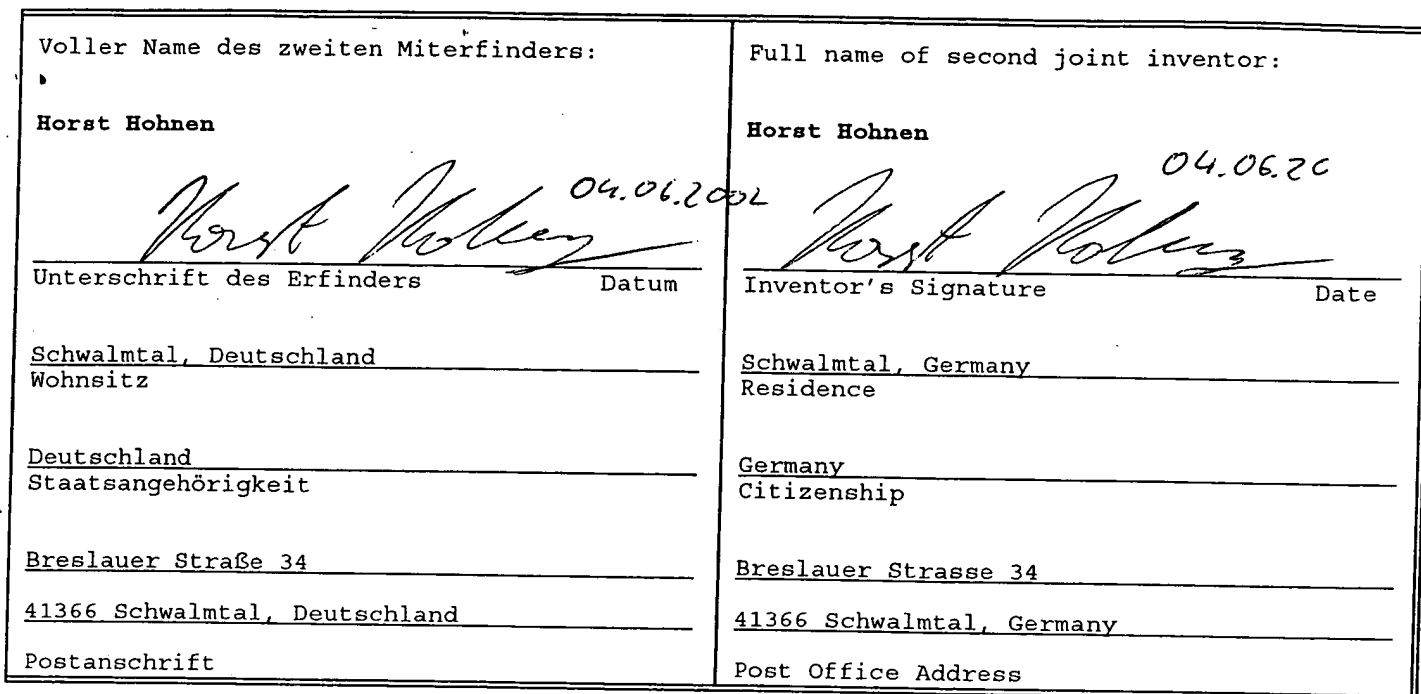 Voller Name des zweiten Miterfinders:
Horst Hohnen
Horst Hohnen 04.06.2002
Unterschrift des Erfinders Datum
Schwalmtal, Deutschland
Wohnsitz
Deutschland
Staatsangehörigkeit
Breslauer Straße 34
41366 Schwalmtal, Deutschland
Postanschrift
Full name of second joint inventor:
Horst Hohnen
Horst Hohnen 04.06.20
Inventor's Signature Date
Schwalmtal, Germany
Residence
Germany
Citizenship
Breslauer Strasse 34
41366 Schwalmtal, Germany
Post Office Address